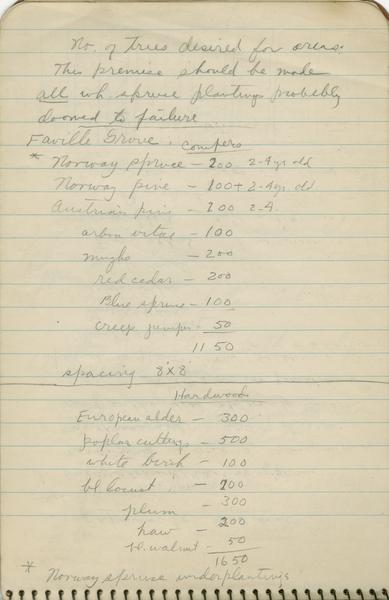 No. of Trees desired for areas.
This premise should be made
all wh spruce plantings probably
doomed to failure
Faville Grove. Conifers
* Norway spruce – 200 2-4 yrs old
Norway pine – 100+ 2-4 yrs old
Austrian pine – 200 2-4.
arbor vitae – 100
mugho – 200
red cedar – 200
Blue spruce – 100
creep juniper – 50
1150
spacing 8'x8'
Hardwoods
European alder – 300
poplar cuttings – 500
white birch – 100
bl locust – 200
plum – 300
haw – 200
bl. walnut – 50
1650
* Norway spruce underplantings